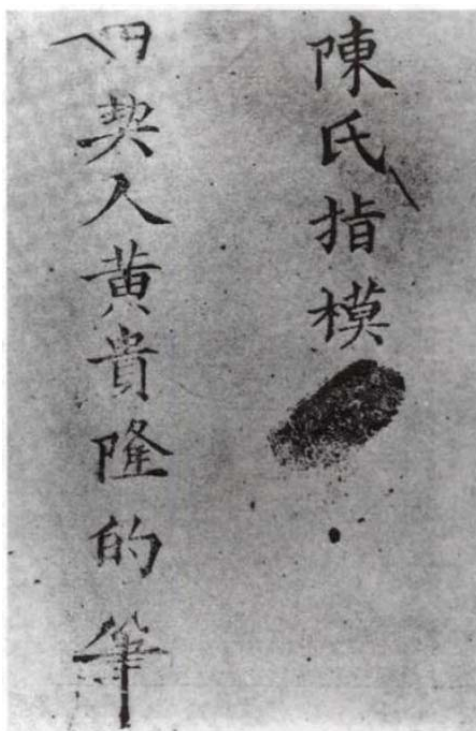 陳氏指模
契人黄貴隆的筆